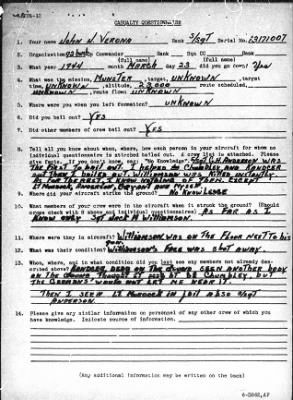 CASUALTY QUESTIONNAIRE
1. Your name John W. Verona Rank S/Sgt Serial No. 13171007
2. Organization 92 bomb Gp Commander Rank Sqn CC Rank
3. What year 1944 month MARCH day 23 did you go down? Yes
4. What was the mission, MUNSTER, target, UNKNOWN, target
time, UNKNOWN, altitude, 23,000 route scheduled,
UNKNOWN, route flown UNKNOWN
5. Where were you when you left formation? UNKNOWN
6. Did you bail out? YES
7. Did other members of crew bail out? YES
8. Tell all you know about when, where, how each person in your aircraft for whom no
individual questionnaire is attached bailed out. A crew list is attached. Please
give facts. If you don't know, say: "No Knowledge".
THE FIRST TO BAIL OUT. I helped to CHUMBLEY AND KANDLER
AND THEN I bailed OUT. WILLIAMSON WAS KILLED INSTANTLY.
AS FOR THE REST, I KNOW NOTHING OF THEM EXCEPT
LT MURDOCK, ANDERSON, BRYANT AND MYSELF
9. Where did your aircraft strike the ground? NO KNOWLEDGE
10. What members of your crew were in the aircraft when it struck the ground? (Should
cross check with 8 above and individual questionnaires) AS FAR AS I
KNOW ONLY SGT JACK M WILLIAMSON.
11. Where were they in aircraft? WILLIAMSON WAS ON THE FLOOR NEXT TO his
gun.
12. What was their condition? WILLIAMSON'S FACE WAS SHOT AWAY.
13. When, where, and in what condition did you last see any members not already des-
cribed above? KANDLER DEAD ON THE GROUND SEEN ANOTHER BODY
ON THE GROUND THOUGHT IT MIGHT BE CHUMBLEY BUT
THE GERMANS WOULD NOT LET ME NEAR IT.
THEN I SEEN LT MURDOCK IN JAIL ALSO S/SGT
ANDERSON.
14. Please give any similar information on personnel of any other crew of which you
have knowledge. Indicate source of information.
(Any additional information may be written on the back)